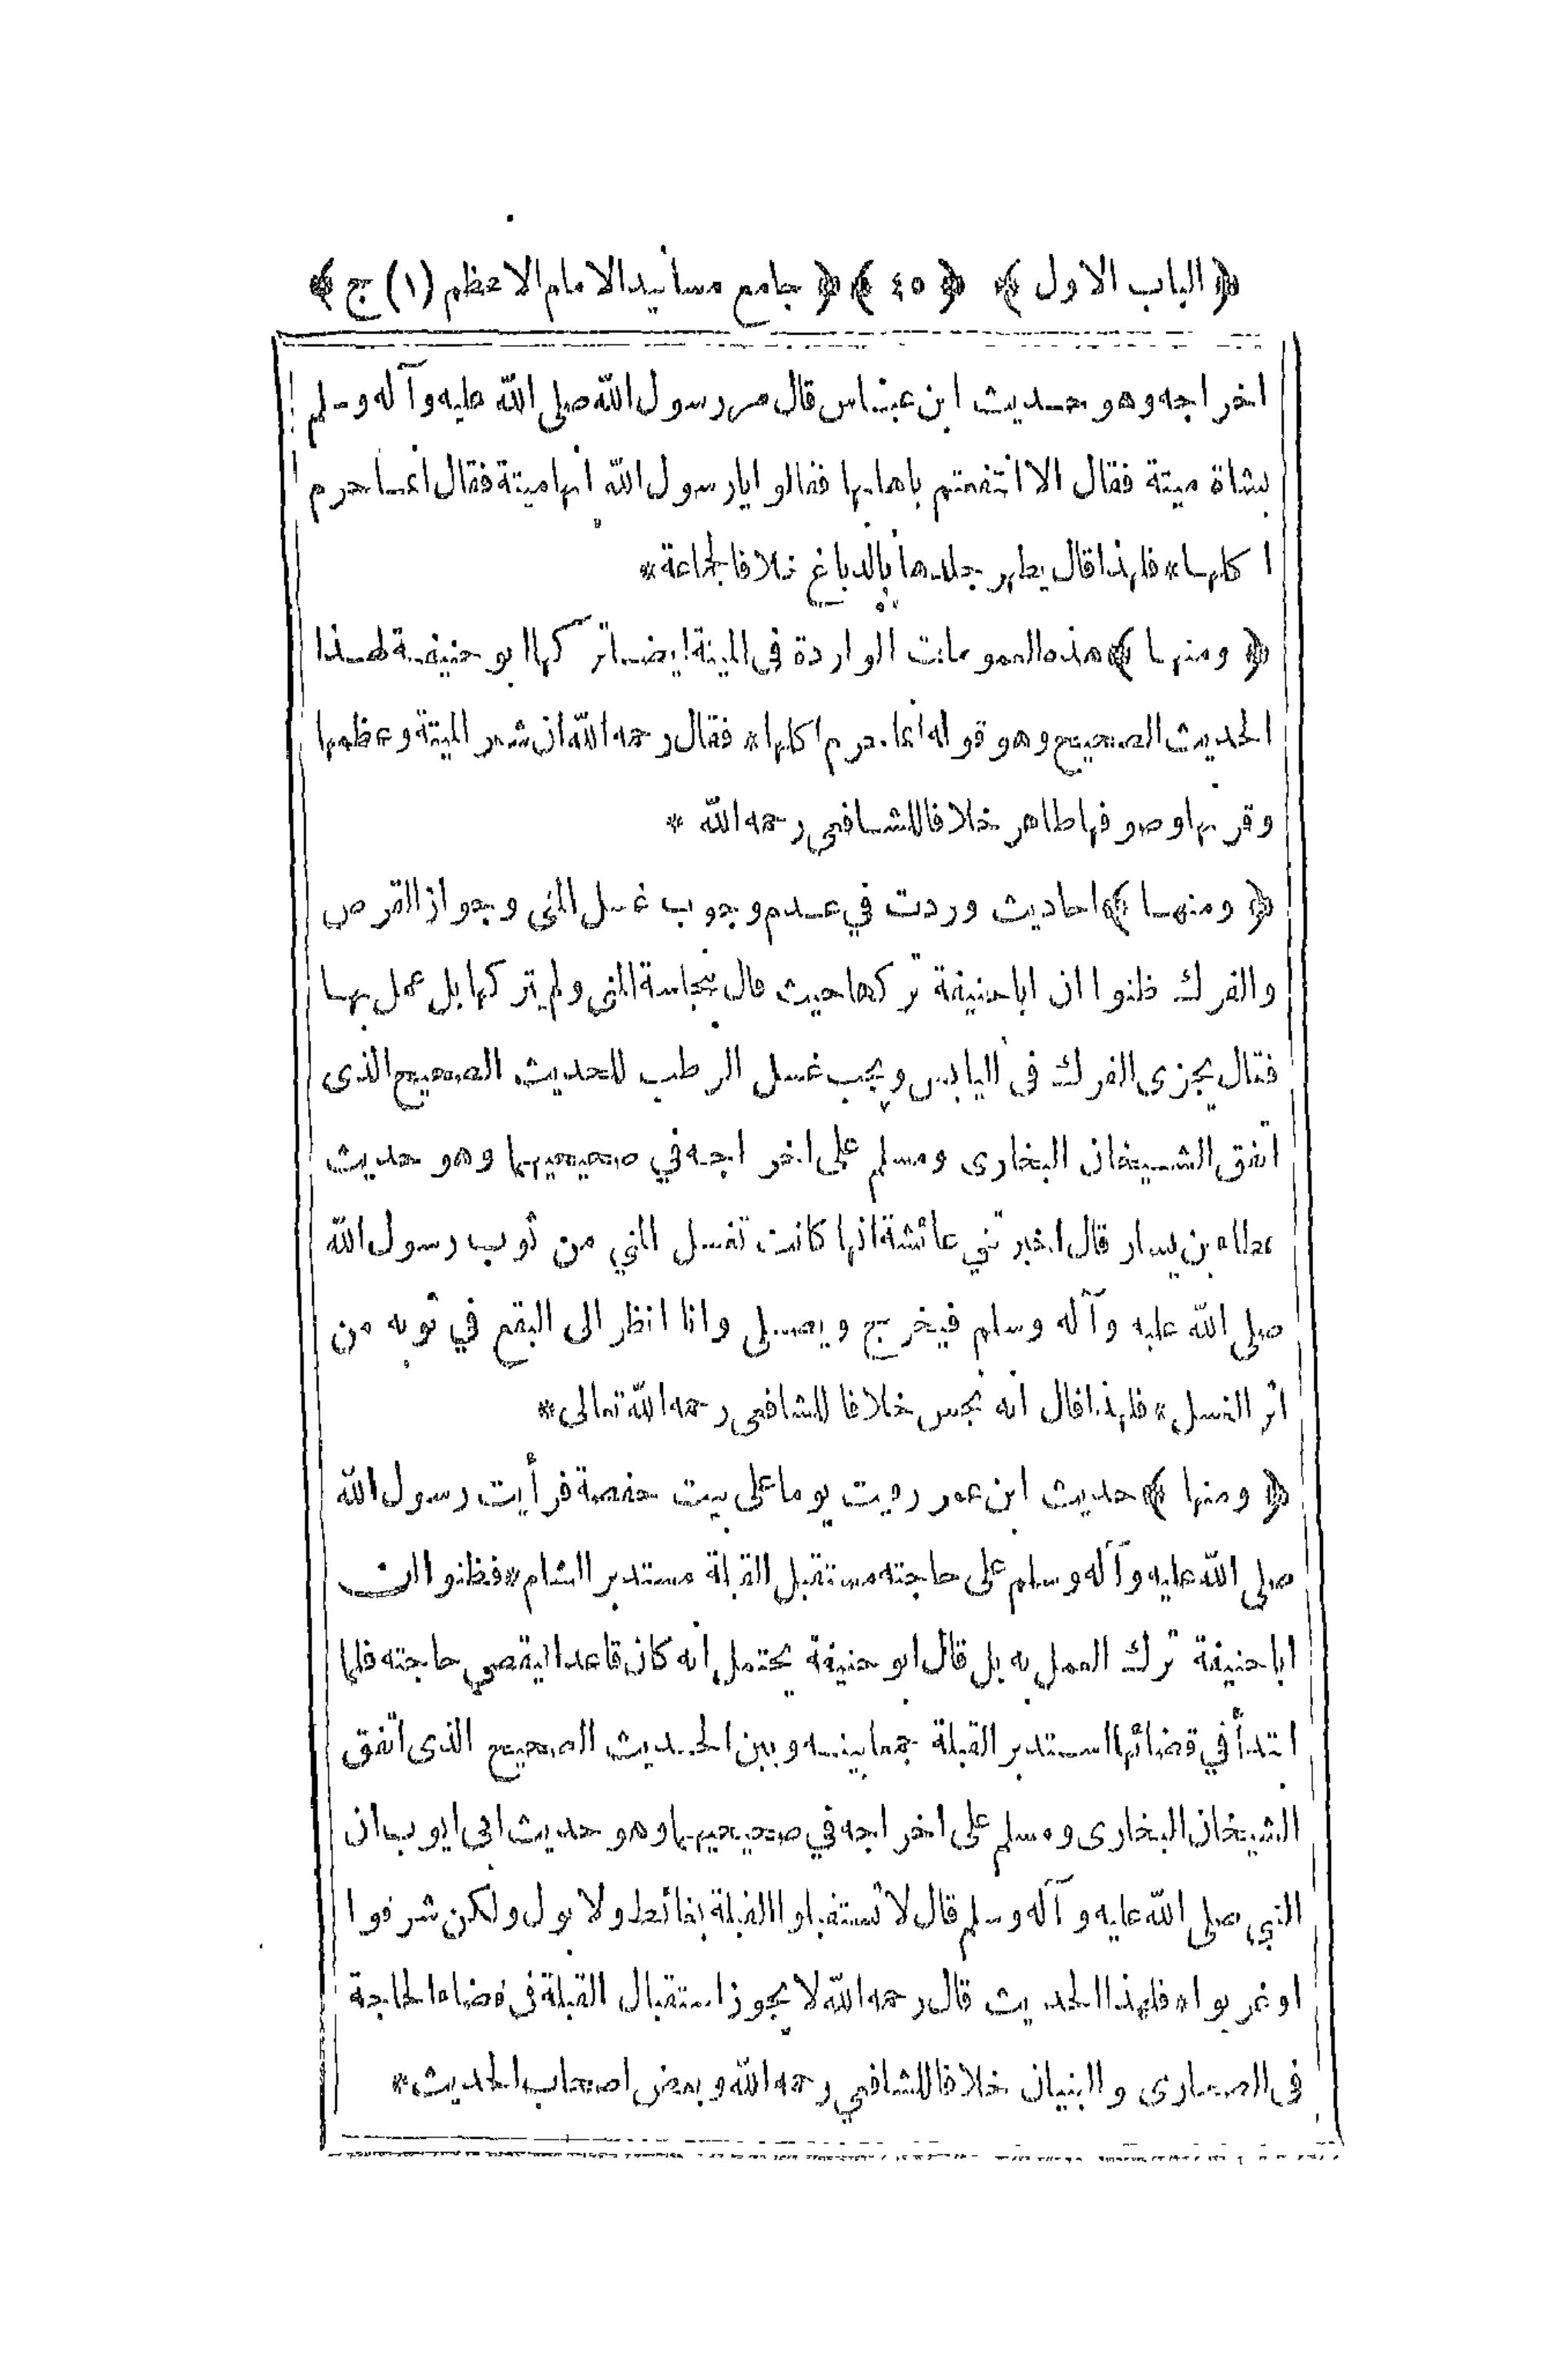 ﴿ الباب الاول ﴾ ﴿ ٤٥ ﴾ ﴿ جامع مسانيد الامام الاعظم (١) ج ﴾
اخراجه وهو حديث ابن عباس قال مر رسول الله صلى الله عليه وآله وسلم
بشاة ميتة فقال الا انتفعتم باهابها فقالوا يا رسول الله انها ميتة فقال انما حرم
اكلها * فلهذا قال يطهر جلدها بالدباغ خلافا لجماعة *
﴿ ومنها ﴾ هذه العمومات الواردة فى الميتة ايضا تركها ابو حنيفة لهذا
الحديث الصحيح وهو قوله انما حرم اكلها * فقال رحمه الله ان شعر الميتة وعظمها
وقرنها وصوفها طاهر خلافا للشافعى رحمه الله *
﴿ ومنها ﴾ احاديث وردت في عدم وجوب غسل المنى وجواز القرص
والفرك ظنوا ان ابا حنيفة تركها حيث قال بنجاسة المنى ولم يتركها بل عمل بها
فقال يجزى الفرك فى اليابس ويجب غسل الرطب للحديث الصحيح الذى
اتفق الشيخان البخارى ومسلم على اخراجه في صحيحيهما وهو حديث
عطاء بن يسار قال اخبرتني عائشة انها كانت تغسل المني من ثوب رسول الله
صلى الله عليه وآله وسلم فيخرج ويصلى وانا انظر الى البقع في ثوبه من
اثر الغسل * فلهذا قال انه نجس خلافا للشافعى رحمه الله تعالى *
﴿ ومنها ﴾ حديث ابن عمر رقيت يوما على بيت حفصة فرأيت رسول الله
صلى الله عليه وآله وسلم على حاجته مستقبل القبلة مستدبر الشام * فظنوا ان
ابا حنيفة ترك العمل به بل قال ابو حنيفة يحتمل انه كان قاعدا ليقضي حاجته فلما
ابتدأ في قضائها استدبر القبلة جمعا بينه وبين الحديث الصحيح الذى اتفق
الشيخان البخارى ومسلم على اخراجه في صحيحيهما وهو حديث ابى ايوب ان
النبي صلى الله عليه وآله وسلم قال لا تستقبلوا القبلة بغائط ولا بول ولكن شرقوا
او غربوا * فلهذا الحديث قال رحمه الله لا يجوز استقبال القبلة فى قضاء الحاجة
فى الصحارى والبنيان خلافا للشافعي رحمه الله وبعض اصحاب الحديث *